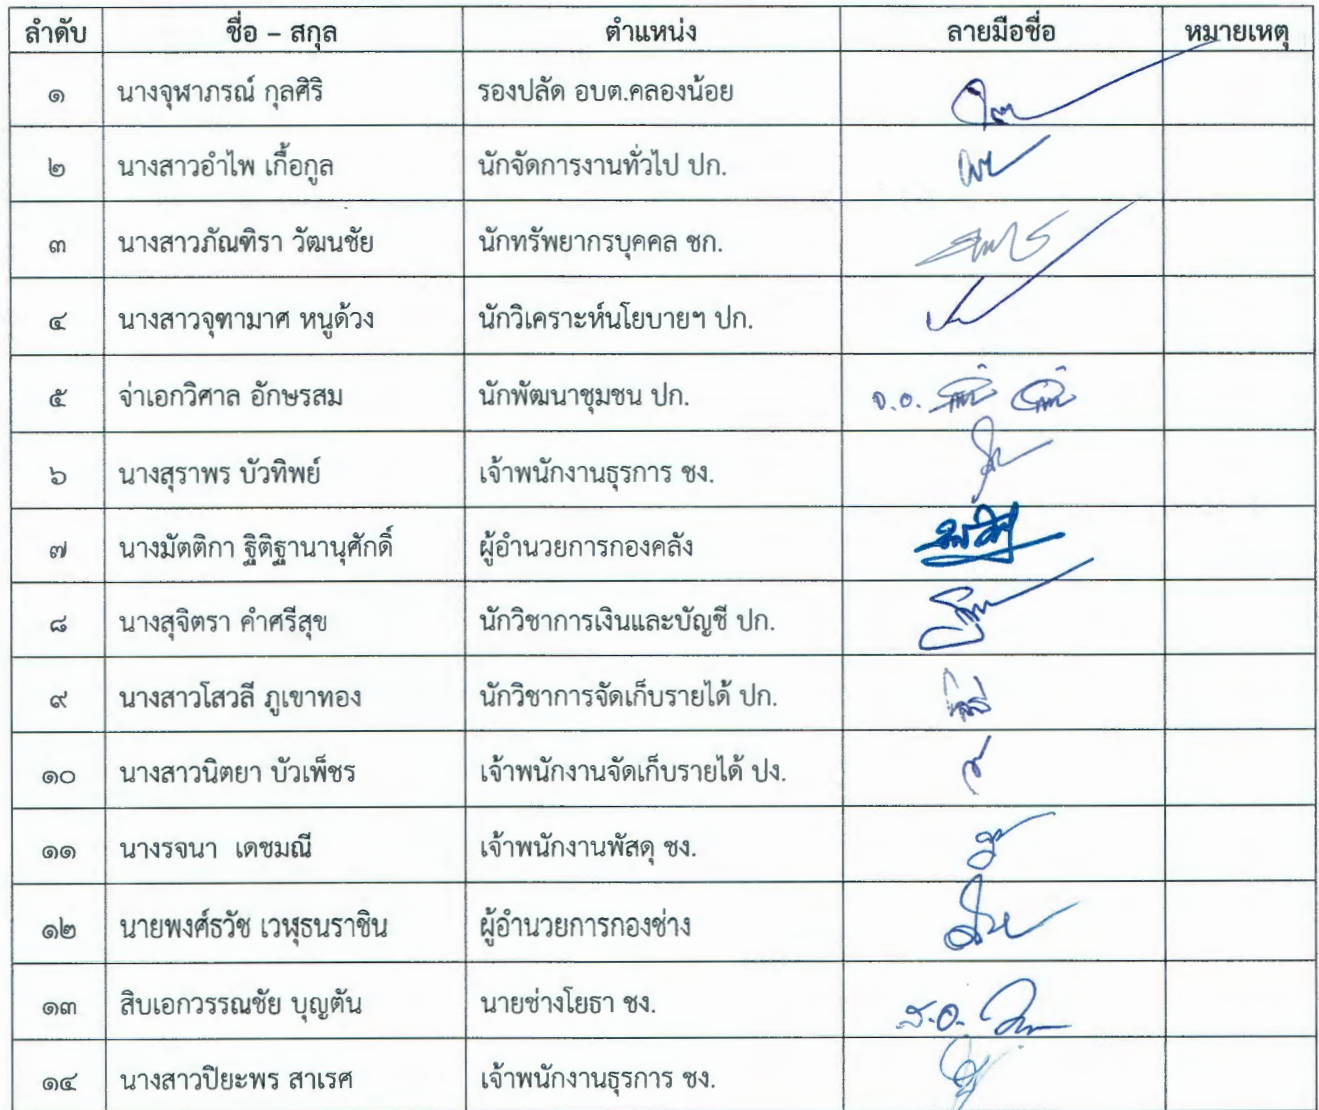 ลำดับ ชื่อ – สกุล ตำแหน่ง ลายมือชื่อ หมายเหตุ
๑ นางจุฬาภรณ์ กุลศิริ รองปลัด อบต.คลองน้อย
๒ นางสาวอำไพ เกื้อกูล นักจัดการงานทั่วไป ปก.
๓ นางสาวภัณฑิรา วัฒนชัย นักทรัพยากรบุคคล ชก.
๔ นางสาวจุฑามาศ หนูด้วง นักวิเคราะห์นโยบายฯ ปก.
๕ จ่าเอกวิศาล อักษรสม นักพัฒนาชุมชน ปก. จ.อ.
๖ นางสุราพร บัวทิพย์ เจ้าพนักงานธุรการ ชง.
๗ นางมัตติกา ฐิติฐานานุศักดิ์ ผู้อำนวยการกองคลัง
๘ นางสุจิตรา คำศรีสุข นักวิชาการเงินและบัญชี ปก.
๙ นางสาวโสวลี ภูเขาทอง นักวิชาการจัดเก็บรายได้ ปก.
๑๐ นางสาวนิตยา บัวเพ็ชร เจ้าพนักงานจัดเก็บรายได้ ปง.
๑๑ นางรจนา เดชมณี เจ้าพนักงานพัสดุ ชง.
๑๒ นายพงศ์ธวัช เวฬุธนราชิน ผู้อำนวยการกองช่าง
๑๓ สิบเอกวรรณชัย บุญตัน นายช่างโยธา ชง. ส.อ.
๑๔ นางสาวปิยะพร สาเรศ เจ้าพนักงานธุรการ ชง.